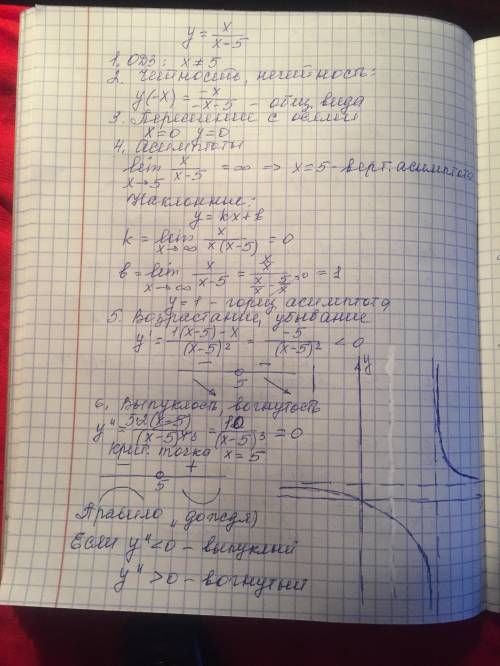 y = x/(x-5)
1. ОДЗ: x ≠ 5
2. Четность, нечетность:
y(-x) = -x/(-x-5) - общ. вида
3. Пересечение с осями
x=0 y=0
4. Асимптоты
lim x→5 x/(x-5) = ∞ => x=5 - верт. асимптота
Наклонные:
y = kx+b
k = lim x→∞ x/(x(x-5)) = 0
b = lim x→∞ x/(x-5) = (x/x)/(x/x - 5/x) = 1
y=1 - гориз асимптота
5. Возрастание, убывание
y' = (1(x-5)-x)/(x-5)² = -5/(x-5)² < 0
- -
5
y
6. Выпуклость, вогнутость
y'' = 5·2(x-5)/(x-5)⁴ = 10/(x-5)³ = 0
Крит. точка x = 5
- +
5
Правило „дождя)
Если y''<0 - выпуклый
y'' >0 - вогнутый